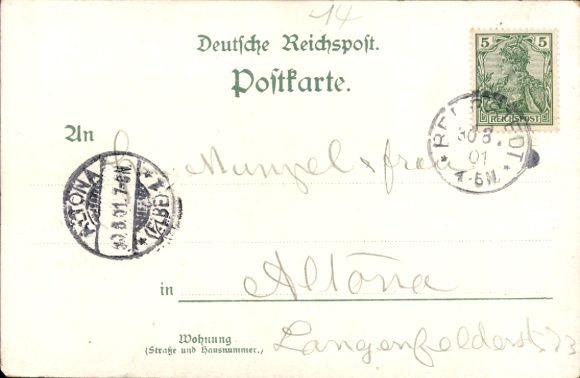 14
Deutsche Reichspost.
Postkarte.
5 5
REICHSPOST
30 8.
01
An
Munzel & frau
ALTONA
30.8.01. 7-8N.
(ELBE)
in Altona
Wohnung
(Straße und Hausnummer.)
Langenfelderst 73